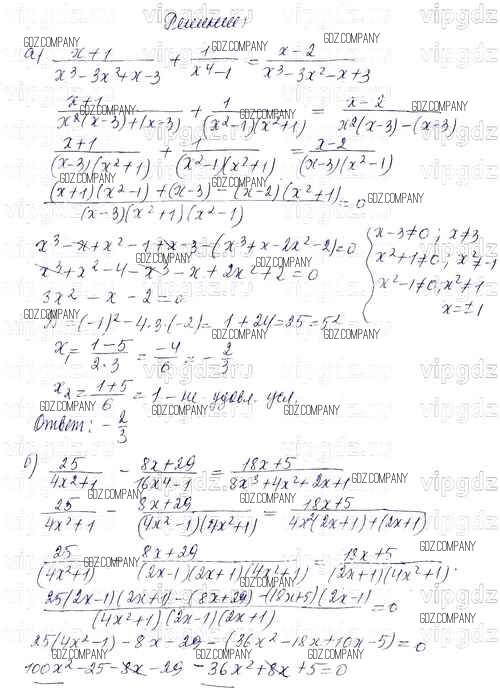 Решение:
а) \frac{x+1}{x^3-3x^2+x-3} + \frac{1}{x^4-1} = \frac{x-2}{x^3-3x^2-x+3}
\frac{x+1}{x^2(x-3)+(x-3)} + \frac{1}{(x^2-1)(x^2+1)} = \frac{x-2}{x^2(x-3)-(x-3)}
\frac{x+1}{(x-3)(x^2+1)} + \frac{1}{(x^2-1)(x^2+1)} = \frac{x-2}{(x-3)(x^2-1)}
\frac{(x+1)(x^2-1)+(x-3)-(x-2)(x^2+1)}{(x-3)(x^2+1)(x^2-1)} = 0
x^3-x+x^2-1+x-3-(x^3+x-2x^2-2)=0
x^3+x^2-4-x^3-x+2x^2+2=0
3x^2-x-2=0
{ x-3≠0; x≠3
x^2+1≠0; x^2≠-1
x^2-1≠0; x^2≠1
x=±1
D=(-1)^2-4·3·(-2)=1+24=25=5^2
x_1=\frac{1-5}{2·3}=\frac{-4}{6}=-\frac{2}{3}
x_2=\frac{1+5}{6}=1-не удовл. усл.
Ответ: -\frac{2}{3}
б) \frac{25}{4x^2+1} - \frac{8x+29}{16x^4-1} = \frac{18x+5}{8x^3+4x^2+2x+1}
\frac{25}{4x^2+1} - \frac{8x+29}{(4x^2-1)(4x^2+1)} = \frac{18x+5}{4x^2(2x+1)+(2x+1)}
\frac{25}{(4x^2+1)} - \frac{8x+29}{(2x-1)(2x+1)(4x^2+1)} = \frac{18x+5}{(2x+1)(4x^2+1)}.
\frac{25(2x-1)(2x+1)-(8x+29)-(18x+5)(2x-1)}{(4x^2+1)(2x-1)(2x+1)} = 0
25(4x^2-1)-8x-29-(36x^2-18x+10x-5)=0
100x^2-25-8x-29-36x^2+8x+5=0
GDZ.COMPANY
vipgdz